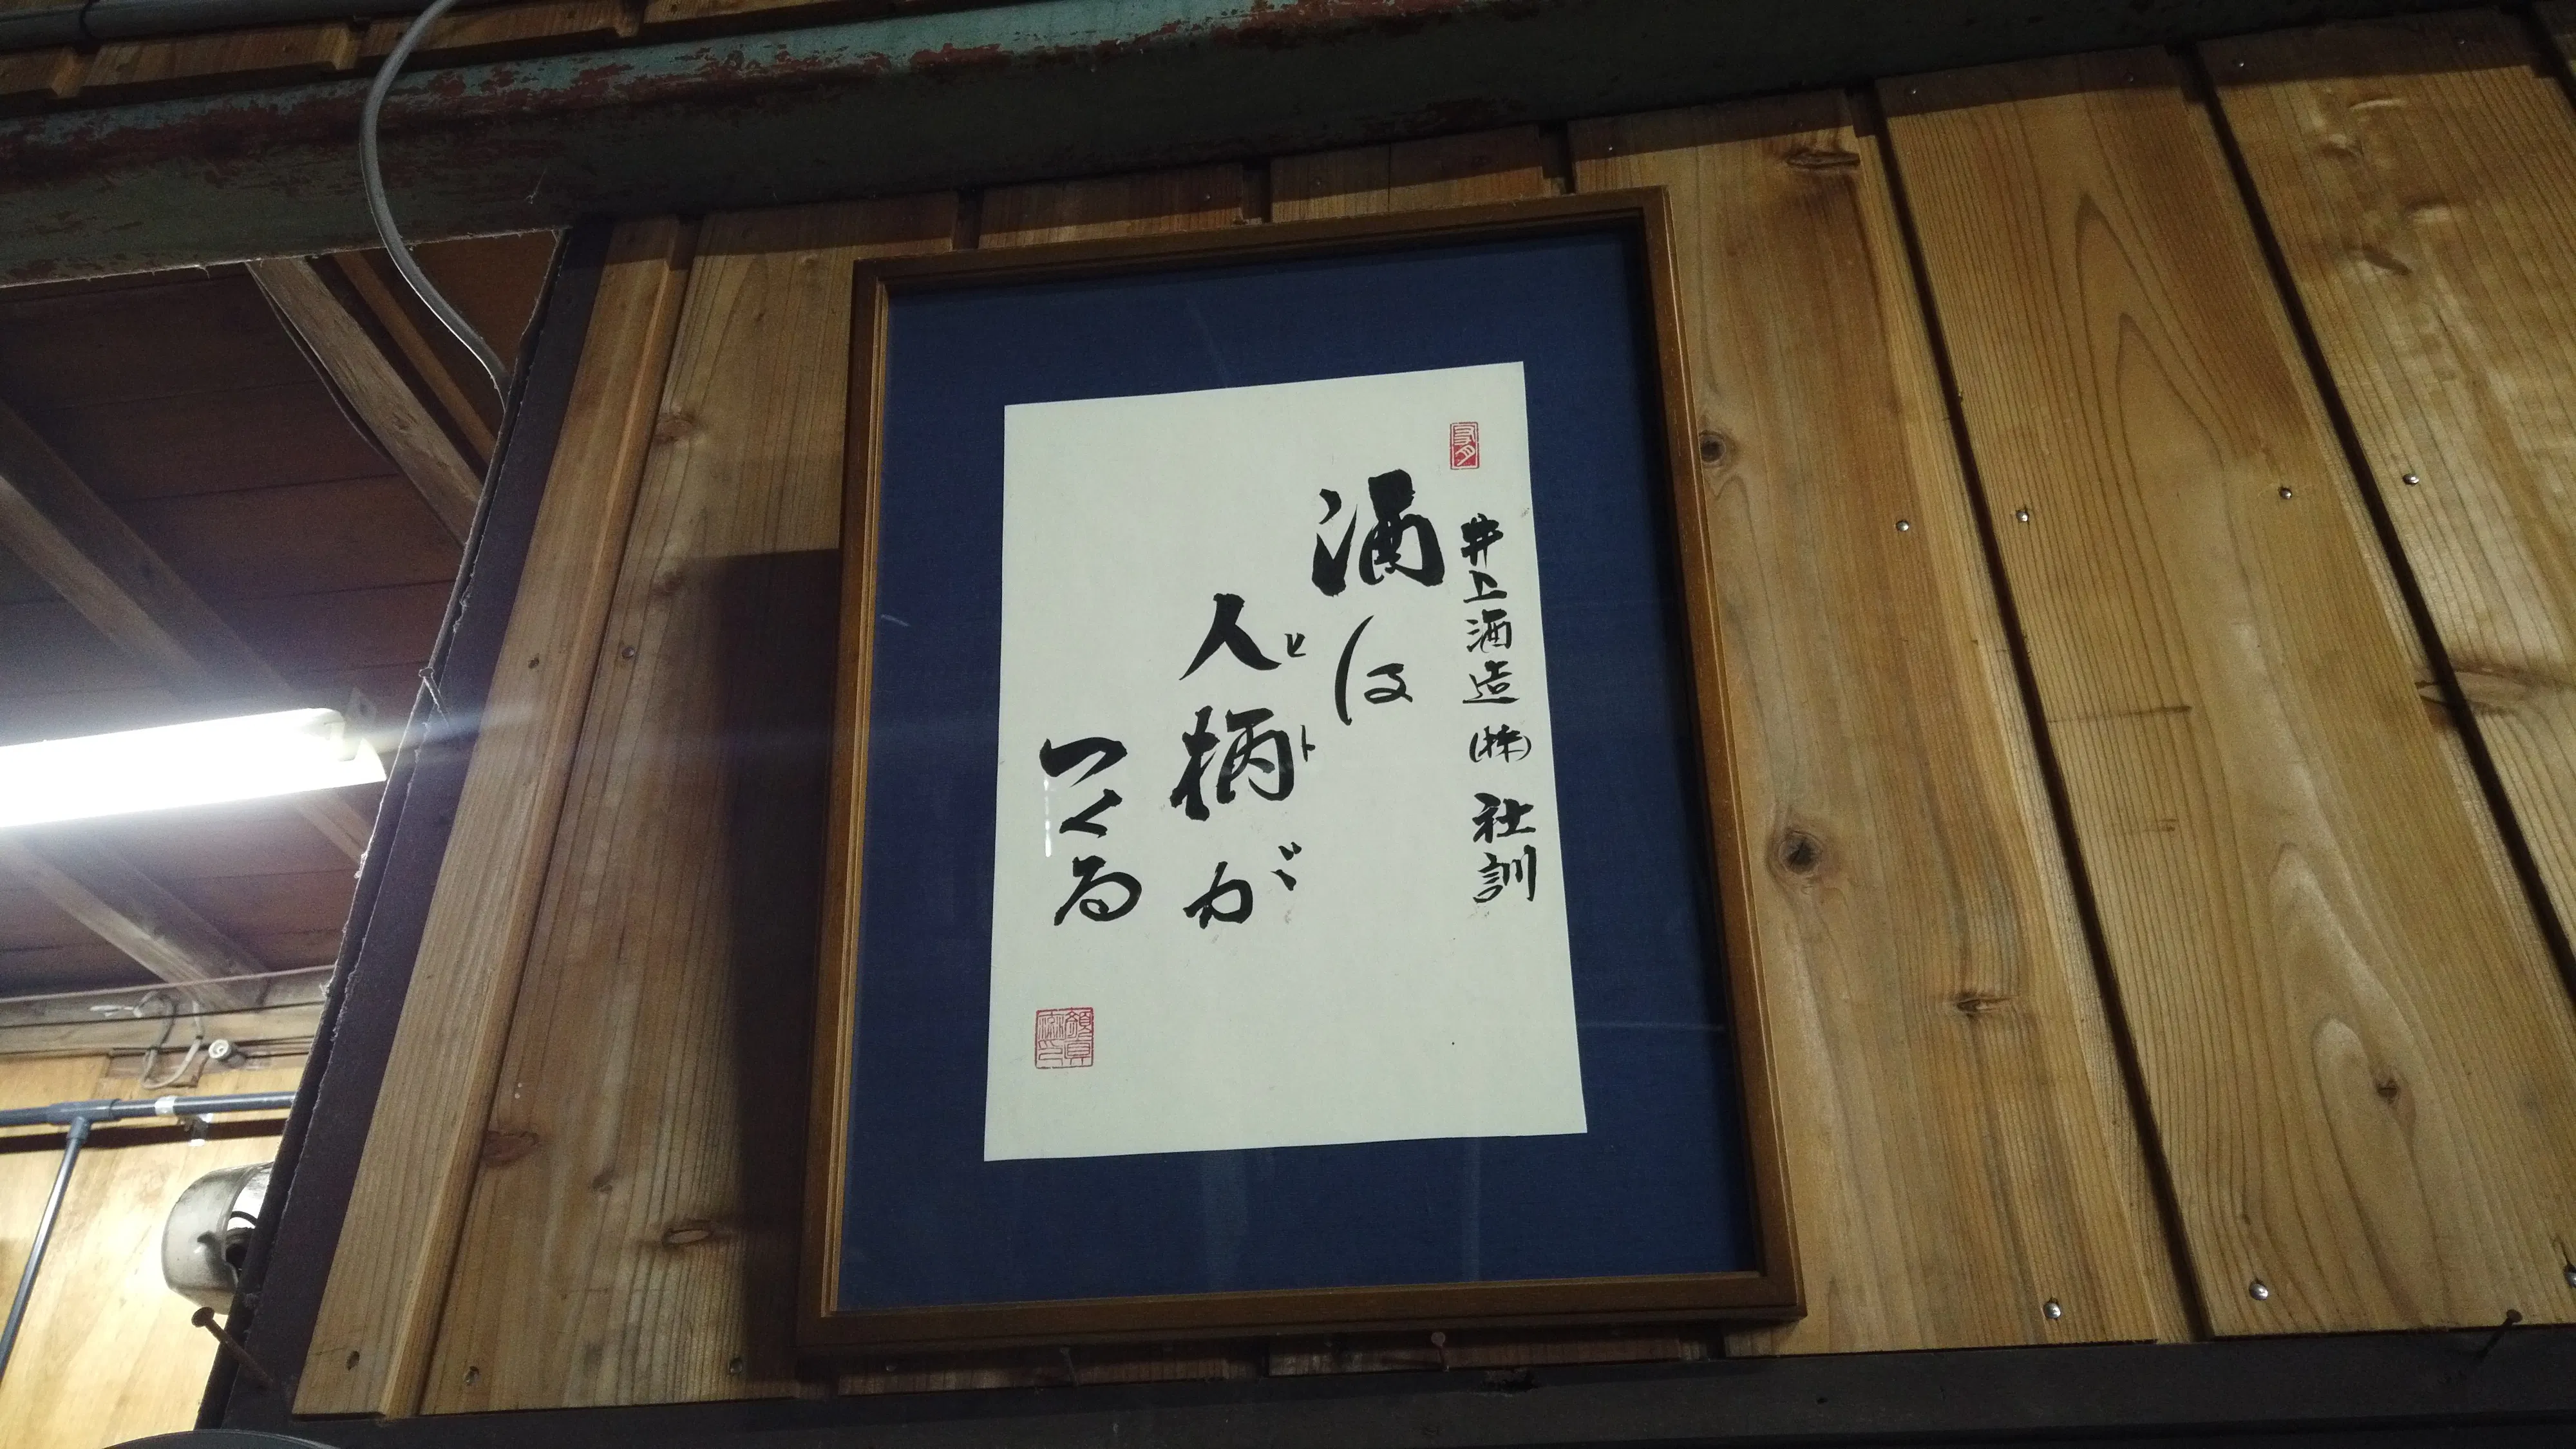 井上酒造(株) 社訓
酒は
人柄が
ヒト
つくる